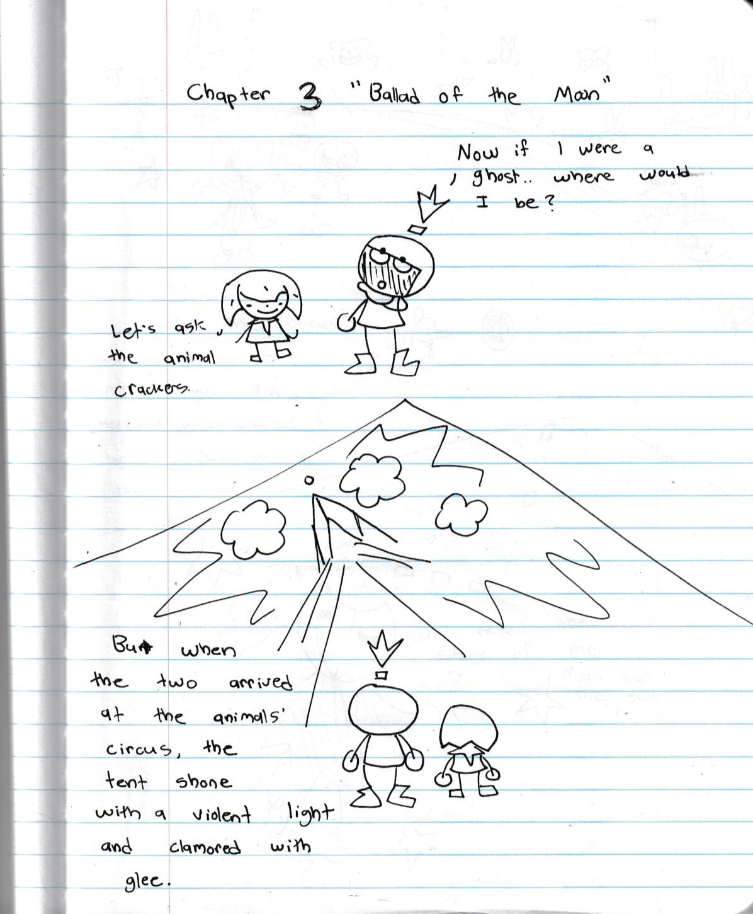 Chapter 3 "Ballad of the Moon"
Now if I were a
ghost.. where would
I be?
Let's ask
the animal
crackers.
But when
the two arrived
at the animals'
circus, the
tent shone
with a violent light
and clamored with
glee.